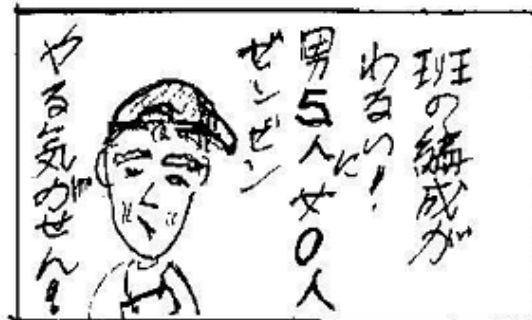 班の編成が
わるい！
男5人に女0人
ゼンゼン
やる気がせん！